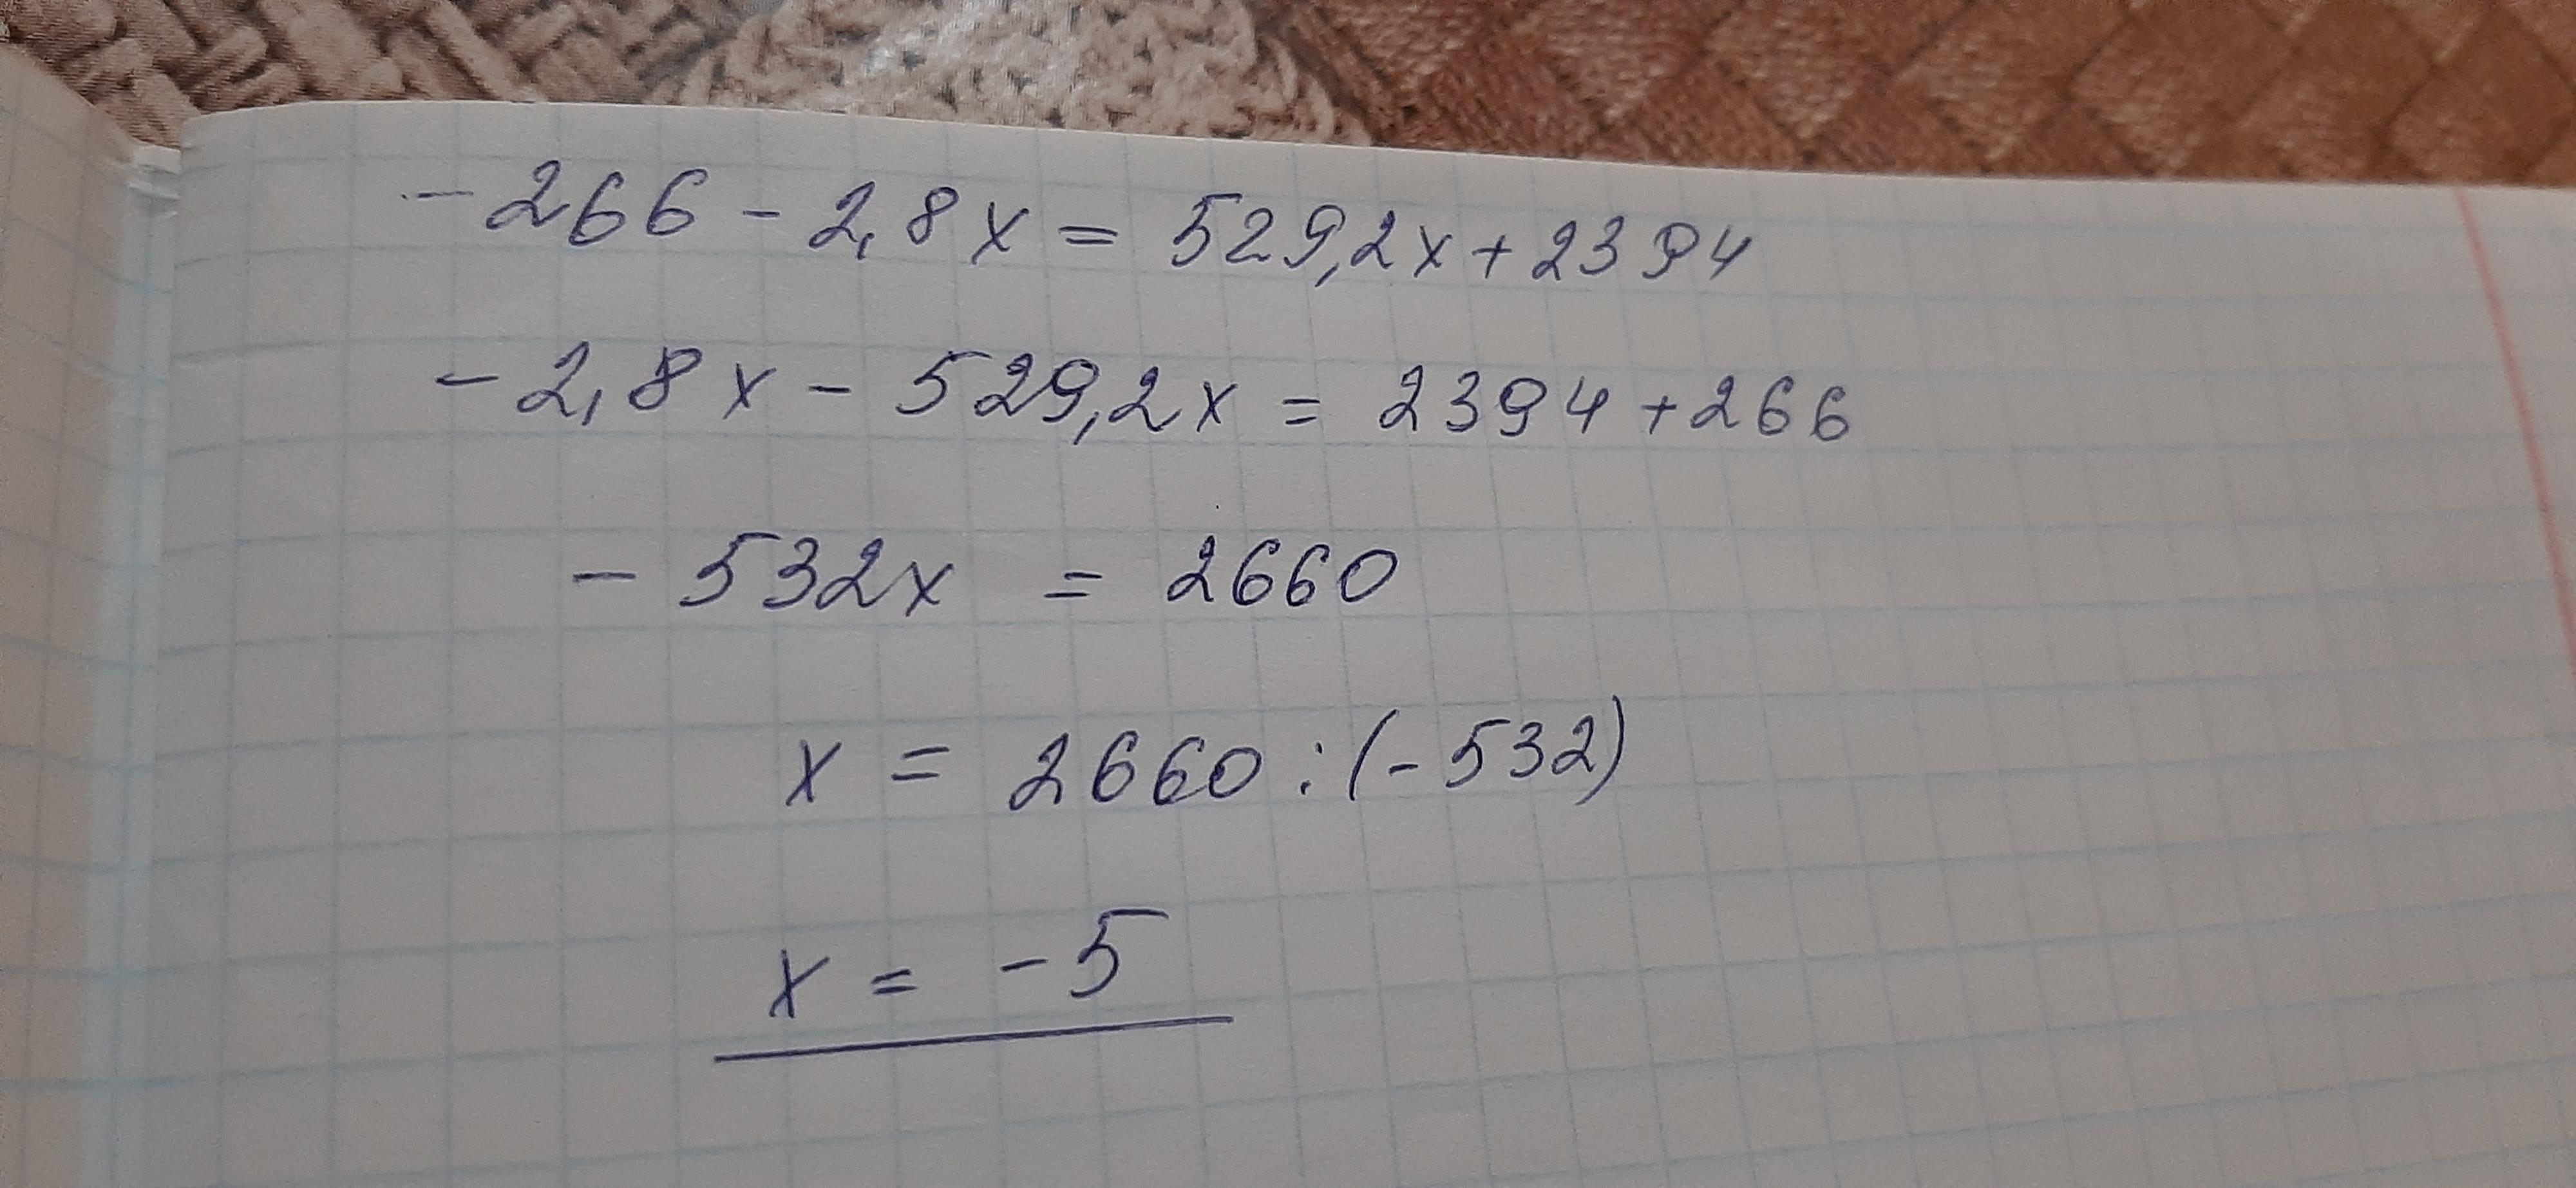 - 266 - 2,8x = 529,2x + 2394
- 2,8x - 529,2x = 2394 + 266
- 532x = 2660
x = 2660 : (-532)
x = -5